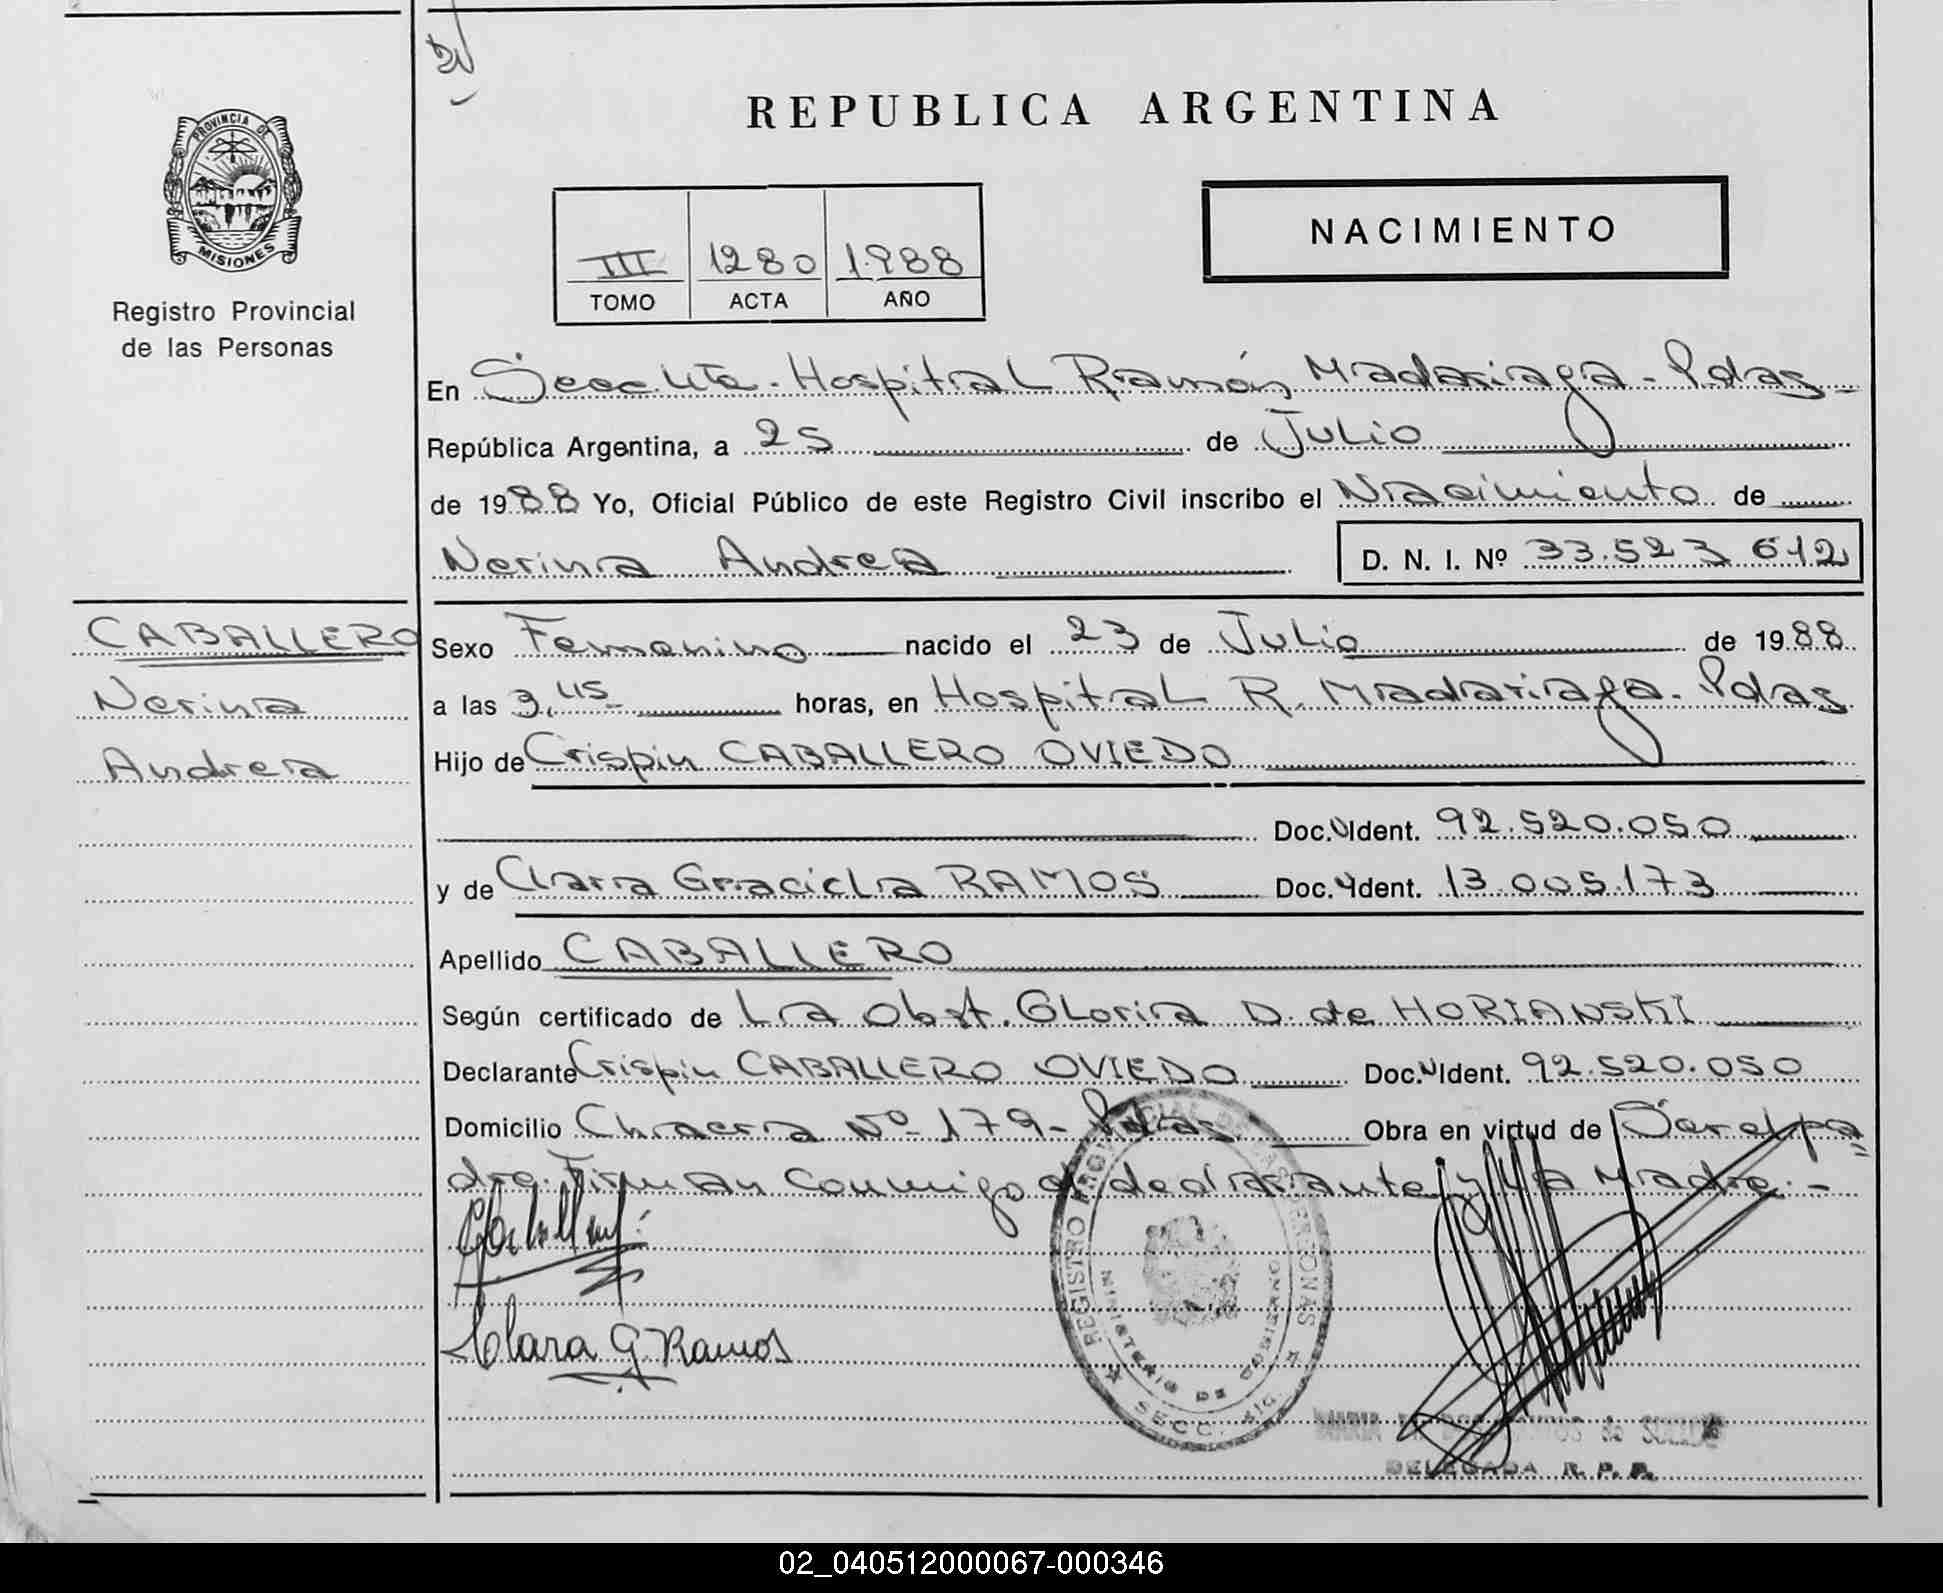 REPUBLICA ARGENTINA
PROVINCIA DE
MISIONES
Registro Provincial
de las Personas
NACIMIENTO
III 1280 1988
TOMO ACTA AÑO
En Secc. 4ta. Hospital Ramón Madariaga - Pdas
República Argentina, a 25 de Julio
de 1988 Yo, Oficial Público de este Registro Civil inscribo el Nacimiento de
Nerina Andrea D. N. I. Nº 33.523 612
CABALLERO
Nerina
Andrea
Sexo Femenino nacido el 23 de Julio de 1988
a las 3,45 horas, en Hospital R. Madariaga. Pdas
Hijo de Crispin CABALLERO OVIEDO
Doc. Ident. 92.520.050
y de Clara Graciela RAMOS Doc. Ident. 13.005.173
Apellido CABALLERO
Según certificado de La Obst. Gloria D. de HORIANSKI
Declarante Crispin CABALLERO OVIEDO Doc. Ident. 92.520.050
Domicilio Chacra Nº 179 - Pdas Obra en virtud de Ser el pa
dre. Firman conmigo el declarante y la Madre. -
Clara G Ramos
REGISTRO PROVINCIAL DE LAS PERSONAS
MINISTERIO DE GOBIERNO
SECC.
MARIA de
DELEGADA R. P. P.
02_040512000067-000346